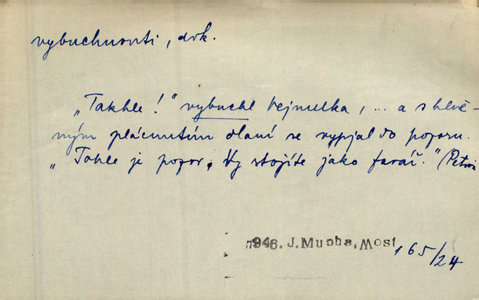 vybuchnouti, dok.
„Takhle!" vybuchl Vejmelka, ... a s hluč-
ným plácnutím dlaní se vypjal do pozoru.
„Tohle je pozor, Vy stojíte jako farář." (Petrů
1946. J. Mucha, Most 165/24